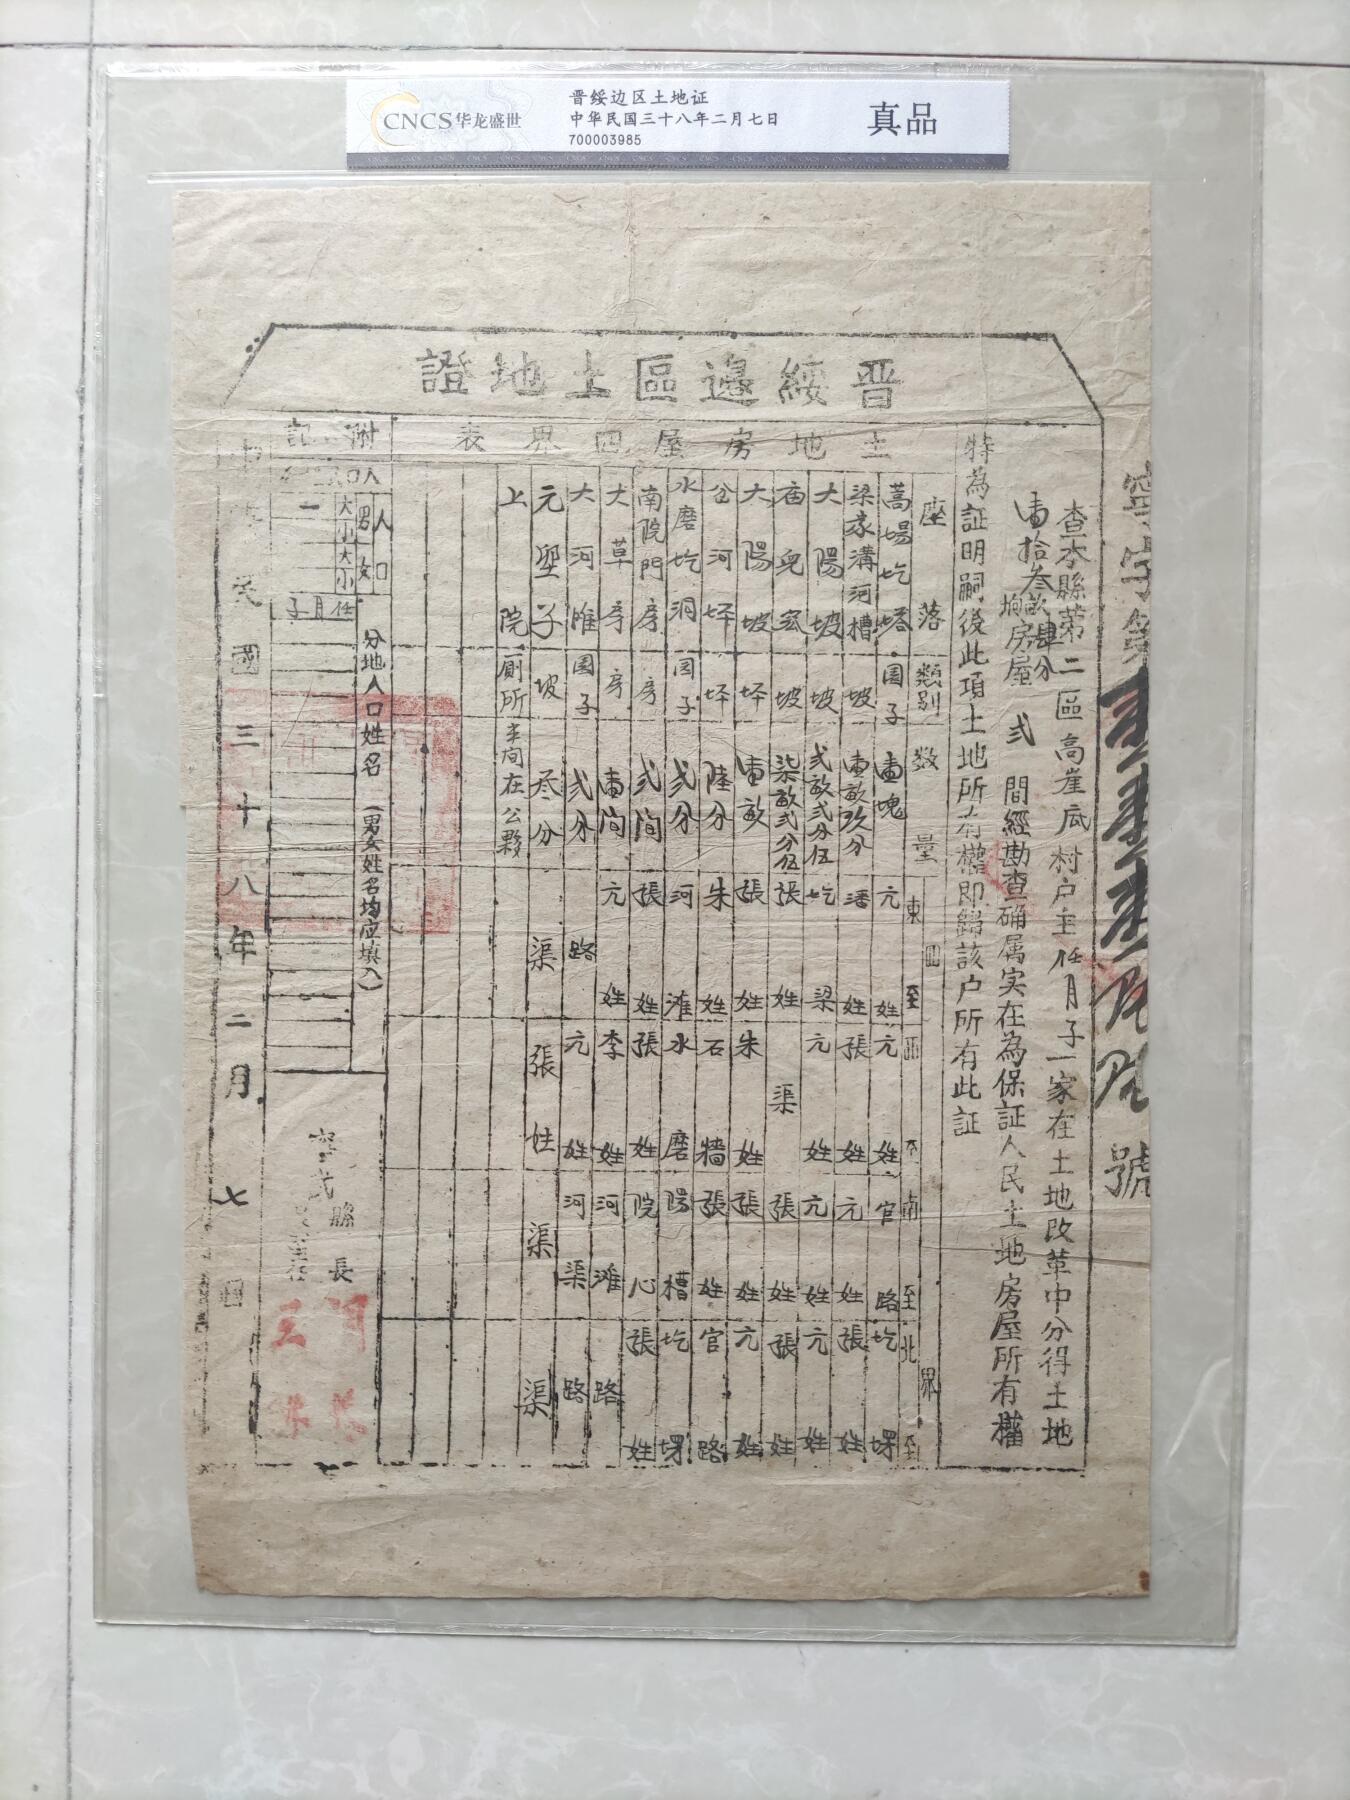 CNCS华龙盛世
晋绥边区土地证
中华民国三十八年二月七日
700003985
真品
晋綏邊區土地證
寧字第
號
查本縣第二區高崖底村户主任月子一家在土地改革中分得土地
壹拾叁畝肆分
坰房屋 弍 間經勘查确属实在為保証人民土地房屋所有權
特為証明嗣後此項土地所有權即歸該户所有此証
土地房屋四界表
座落 類别 数量 四界 東至 西至 南至 北至
蒿場圪塔 园子 壹塊 亢姓 亢姓 官路 圪堺
梁家溝河槽 坡 壹畝玖分 潘姓 張姓 亢姓 張姓
大陽坡 坡 弍畝弍分伍 圪梁 亢姓 亢姓 亢姓
庙兒 坡 柒畝弍分伍 張姓 渠 張姓 張姓
大陽坡 坪 壹畝 張姓 朱姓 張姓 亢姓
岔河坪 坪 陸分 朱姓 石牆 張姓 官路
水磨圪洞 园子 弍分 河滩 水磨 陽槽 圪堺
南院門房 房 弍间 張姓 張姓 院心 張姓
大草房 房 壹间 亢姓 李姓 河滩 路
大河滩 园子 弍分 路 亢姓 河渠 路
元墅子 坡 叁分 渠 張姓 渠 渠
上院 厠所 半间在公夥
附記
人口
人口 男 大 小 女 大 小
一
分地人口姓名（男女姓名均应填入）
任月子
寧武縣長
中華民國三十八年二月七日